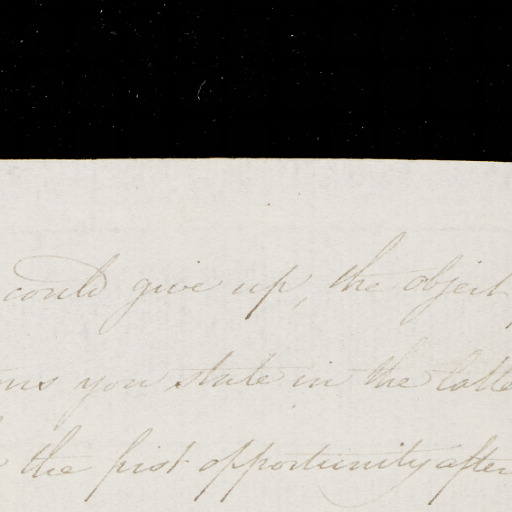 could give up, the object
ons you state in the latte
the first opportunity after